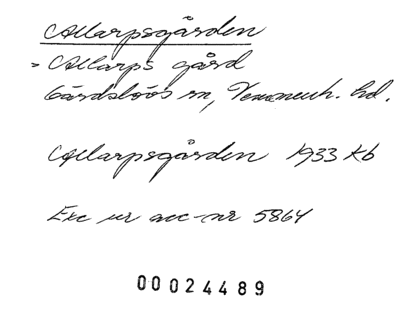 Allarpsgården
= Allarps gård
Gärdslövs sn, Vemmenh. hd.
Allarpsgården 1933 Kb
Exc ur acc-nr 5864
00024489